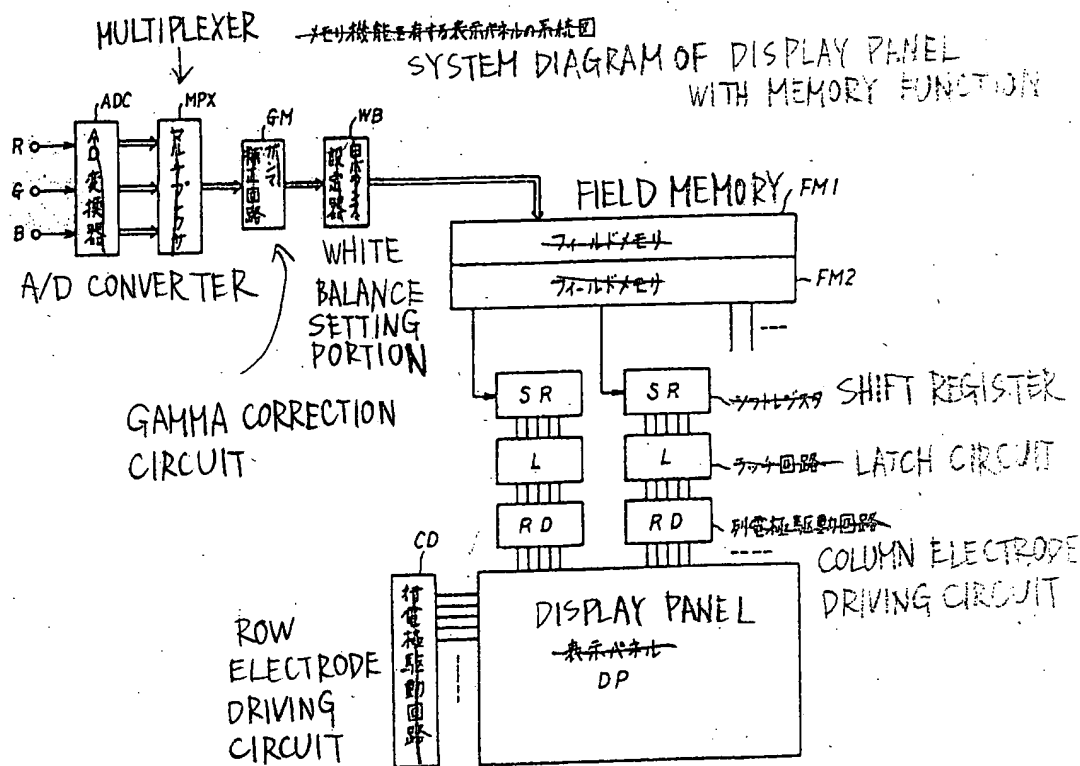 MULTIPLEXER
メモリ機能を有する表示パネルの系統図
SYSTEM DIAGRAM OF DISPLAY PANEL
WITH MEMORY FUNCTION
ADC
MPX
GM
WB
R
G
B
AD変換器
マルチプレクサ
ガンマ
補正回路
白バランス
設定器
A/D CONVERTER
WHITE
BALANCE
SETTING
PORTION
GAMMA CORRECTION
CIRCUIT
FIELD MEMORY
FM1
フィールドメモリ
フィールドメモリ
FM2
SR
SR
シフトレジスタ SHIFT REGISTER
L
L
ラッチ回路 LATCH CIRCUIT
RD
RD
列電極駆動回路
COLUMN ELECTRODE
DRIVING CIRCUIT
CD
行電極駆動回路
ROW
ELECTRODE
DRIVING
CIRCUIT
DISPLAY PANEL
表示パネル
DP